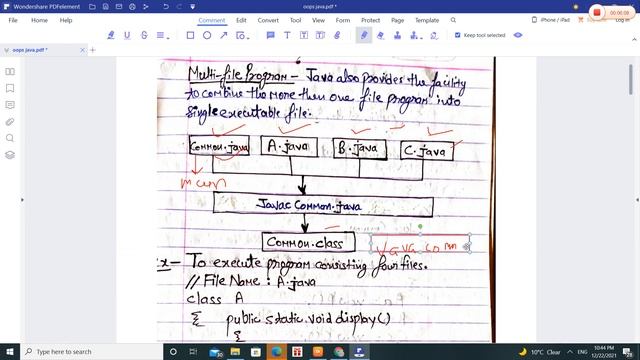 Wondershare PDFelement
oops java.pdf *
00:00:08
File
Home
Help
Comment
Convert
View
Edit
Page
Protect
iPhone / iPad
Share
Keep tool selected
oops java.pdf *
Multi-file Program - Java also provides the facility
to combine the more then one file program into
single executable file:
Common.java
A.java
B.java
C.java
main
Javac Common.java
Common.class
Ex - To execute program consisting four files.
// File Name : A.java
class A
{ public static void display()
{
Type here to search
10°C Clear
ENG
10:44 PM
12/22/2021